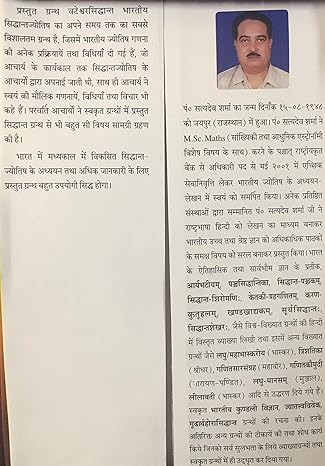 प्रस्तुत ग्रन्थ वटेश्वरसिद्धान्त भारतीय
सिद्धान्तज्योतिष का अपने समय तक का सबसे
विशालतम ग्रन्थ है, जिसमें भारतीय ज्योतिष गणना
की अनेक प्रक्रियायें तथा विधियाँ दी गई हैं, जो
आचार्य के कार्यकाल तक सिद्धान्तज्योतिष के
आचार्यों द्वारा अपनाई जाती थी, साथ ही आचार्य ने
स्वयं की मौलिक गणनायें, विधियाँ तथा विचार भी
कहे हैं। परवर्ति आचार्यों ने स्वकृत ग्रन्थों में प्रस्तुत
सिद्धान्त ग्रन्थ से भी बहुत सी विषय सामग्री ग्रहण
की है।
भारत में मध्यकाल में विकसित सिद्धान्त–
ज्योतिष के अध्ययन तथा अधिक जानकारी के लिए
प्रस्तुत ग्रन्थ बहुत उपयोगी सिद्ध होगा।
पं० सत्यदेव शर्मा का जन्म दिनाँक १५-०८-१९४८
को जयपुर (राजस्थान) में हुआ। पं० सत्यदेव शर्मा ने
M.Sc. Maths (सांख्यिकी तथा आधुनिक एस्ट्रोनॉमी
विशेष विषय के साथ) करने के पश्चात् राष्ट्रीयकृत
बैंक से अधिकारी पद से मई २००१ में एच्छिक
सेवानिवृत्ति लेकर भारतीय ज्योतिष के अध्ययन–
लेखन में स्वयं को समर्पित किया। अनेक प्रतिष्ठित
संस्थाओं द्वारा सम्मानित पं० सत्यदेव शर्मा जी ने
राष्ट्रभाषा हिन्दी को लेखन का माध्यम बनाकर
भारतीय उच्च तथा श्रेष्ठ ज्ञान को अधिकाधिक पाठकों
के समक्ष विषय को सरल बनाकर प्रस्तुत किया। भारत
के ऐतिहासिक तथा सार्वभौम ज्ञान के प्रतीक,
आर्यभटीयम्, पञ्चसिद्धान्तिका, सिद्धान्त-पञ्चकम्,
सिद्धान्त-शिरोमणिः, केतकी-ग्रहगणितम्, करण-
कुतूहलम्, खण्डखाद्यकम्, सूर्यसिद्धान्तः,
सिद्धान्तशेखरः, जैसे विश्व-विख्यात ग्रन्थों की हिन्दी
में विस्तृत व्याख्या लिखी तथा इसमें अन्य विख्यात
ग्रन्थों जैसे लघु/महाभास्करीय (भास्कर), त्रिशतिका
(श्रीधर), गणितसारसंग्रह (महावीर), गणितकौमुदी
(नारायण-पण्डित), लघु-मानसम् (मुञ्जाल),
लीलावती (भास्कर) आदि से उद्धरण दिये गये हैं।
स्वकृत भारतीय कुण्डली विज्ञान, ज्यातत्त्वविवेक,
गूढार्थहोरासिद्धान्त ग्रन्थों की रचना को। इनके
अतिरिक्त अन्य ग्रन्थों की टीकायें की तथा शोध कार्य
किये जिनको सर्व सुलभता के लिये व्याख्याग्रन्थों तथा
स्वकृत ग्रन्थों में ही उद्धृत कर दिया गया।